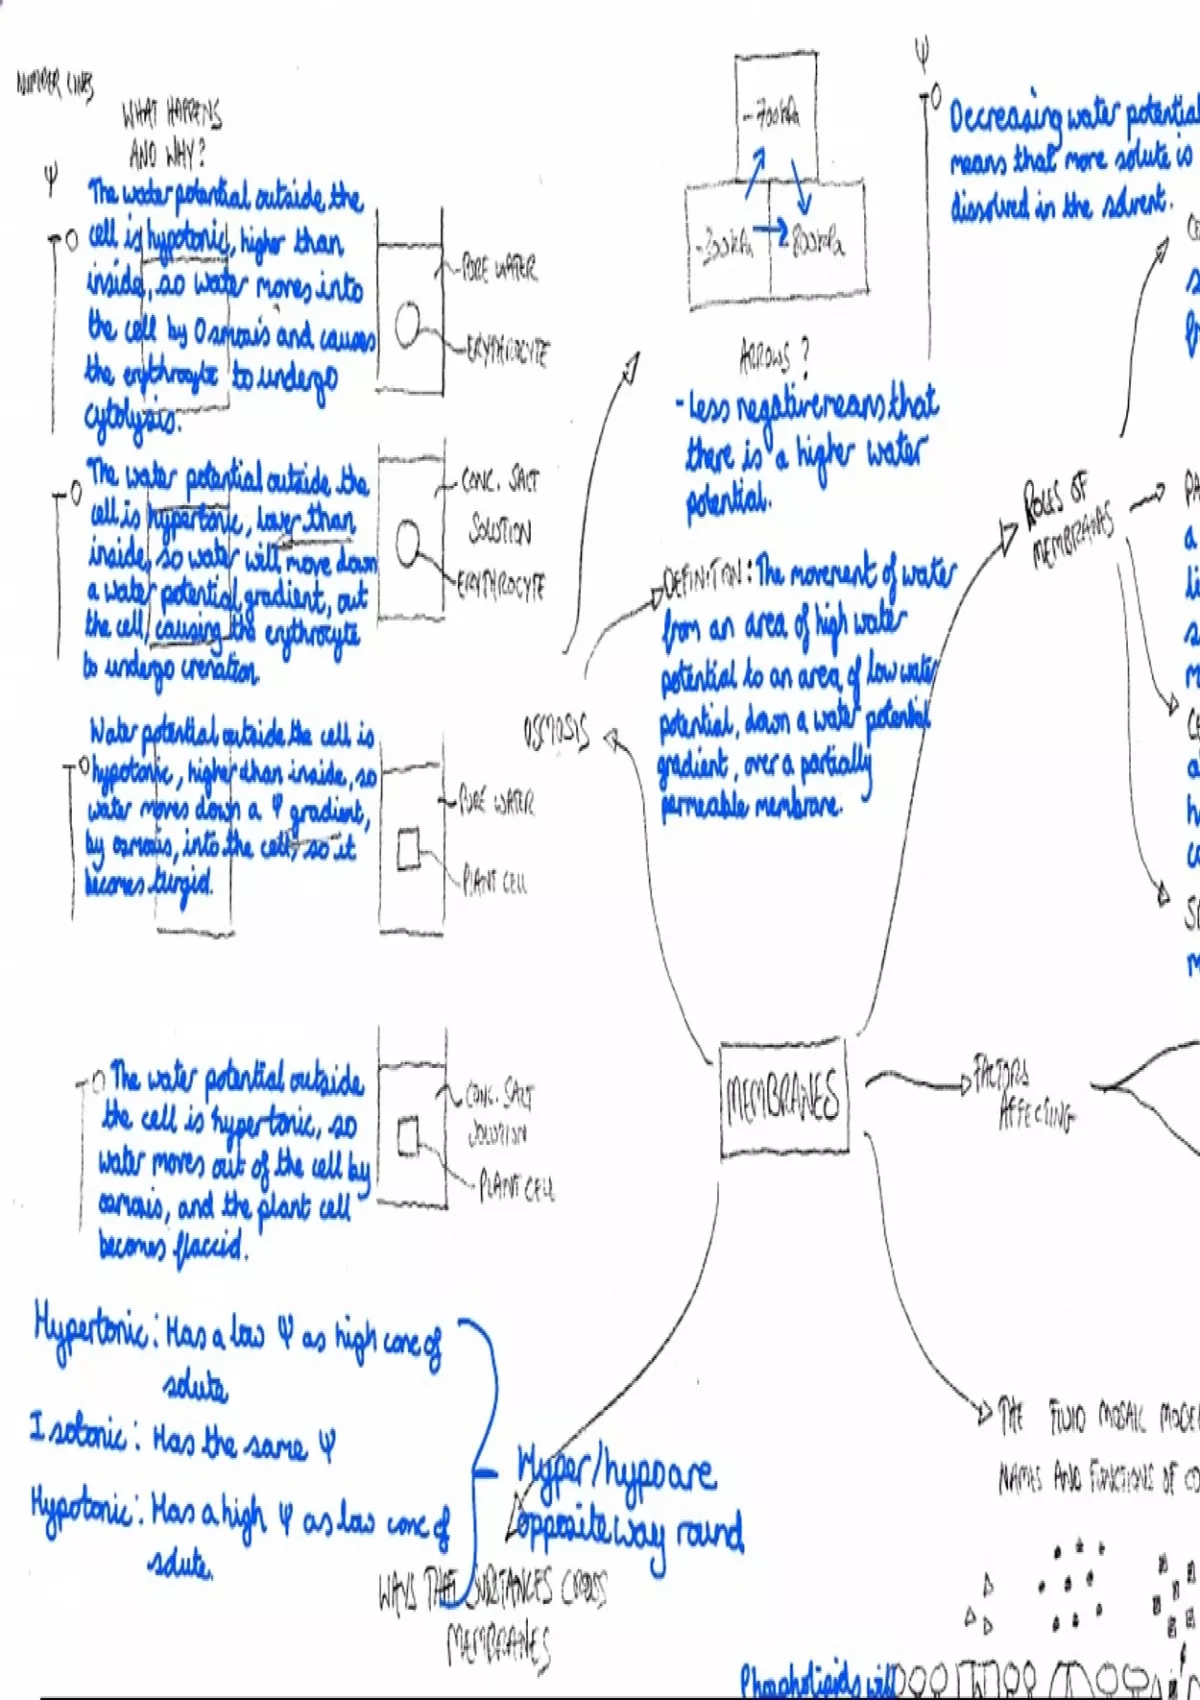 NUMBER LINES
WHAT HAPPENS
AND WHY?
Ψ
0
The water potential outside the
cell is hypotonic, higher than
inside, so water moves into
the cell by Osmosis and causes
the erythrocyte to undergo
cytolysis.
PURE WATER
ERYTHROCYTE
0
The water potential outside the
cell is hypertonic, lower than
inside, so water will move down
a water potential gradient, out
the cell, causing the erythrocyte
to undergo crenation.
CONC. SALT
SOLUTION
ERYTHROCYTE
0
Water potential outside the cell is
hypotonic, higher than inside, so
water moves down a Ψ gradient,
by osmosis, into the cell, so it
becomes turgid.
PURE WATER
PLANT CELL
0
The water potential outside
the cell is hypertonic, so
water moves out of the cell by
osmosis, and the plant cell
becomes flaccid.
CONC. SALT
SOLUTION
PLANT CELL
Hypertonic: Has a low Ψ as high conc of
solute
Isotonic: Has the same Ψ
Hypotonic: Has a high Ψ as low conc of
solute.
Hyper/hypo are
opposite way round
WAYS THAT SUBSTANCES CROSS
MEMBRANES
OSMOSIS
-700kPa
-300kPa
-800kPa
ARROWS?
- Less negative means that
there is a higher water
potential.
DEFINITION: The movement of water
from an area of high water
potential to an area of low water
potential, down a water potential
gradient, over a partially
permeable membrane.
Ψ
0
Decreasing water potential
means that more solute is
dissolved in the solvent.
ROLES OF
MEMBRANES
MEMBRANES
FACTORS
AFFECTING
THE FLUID MOSAIC MODEL
NAMES AND FUNCTIONS OF CO
Phospholipids will